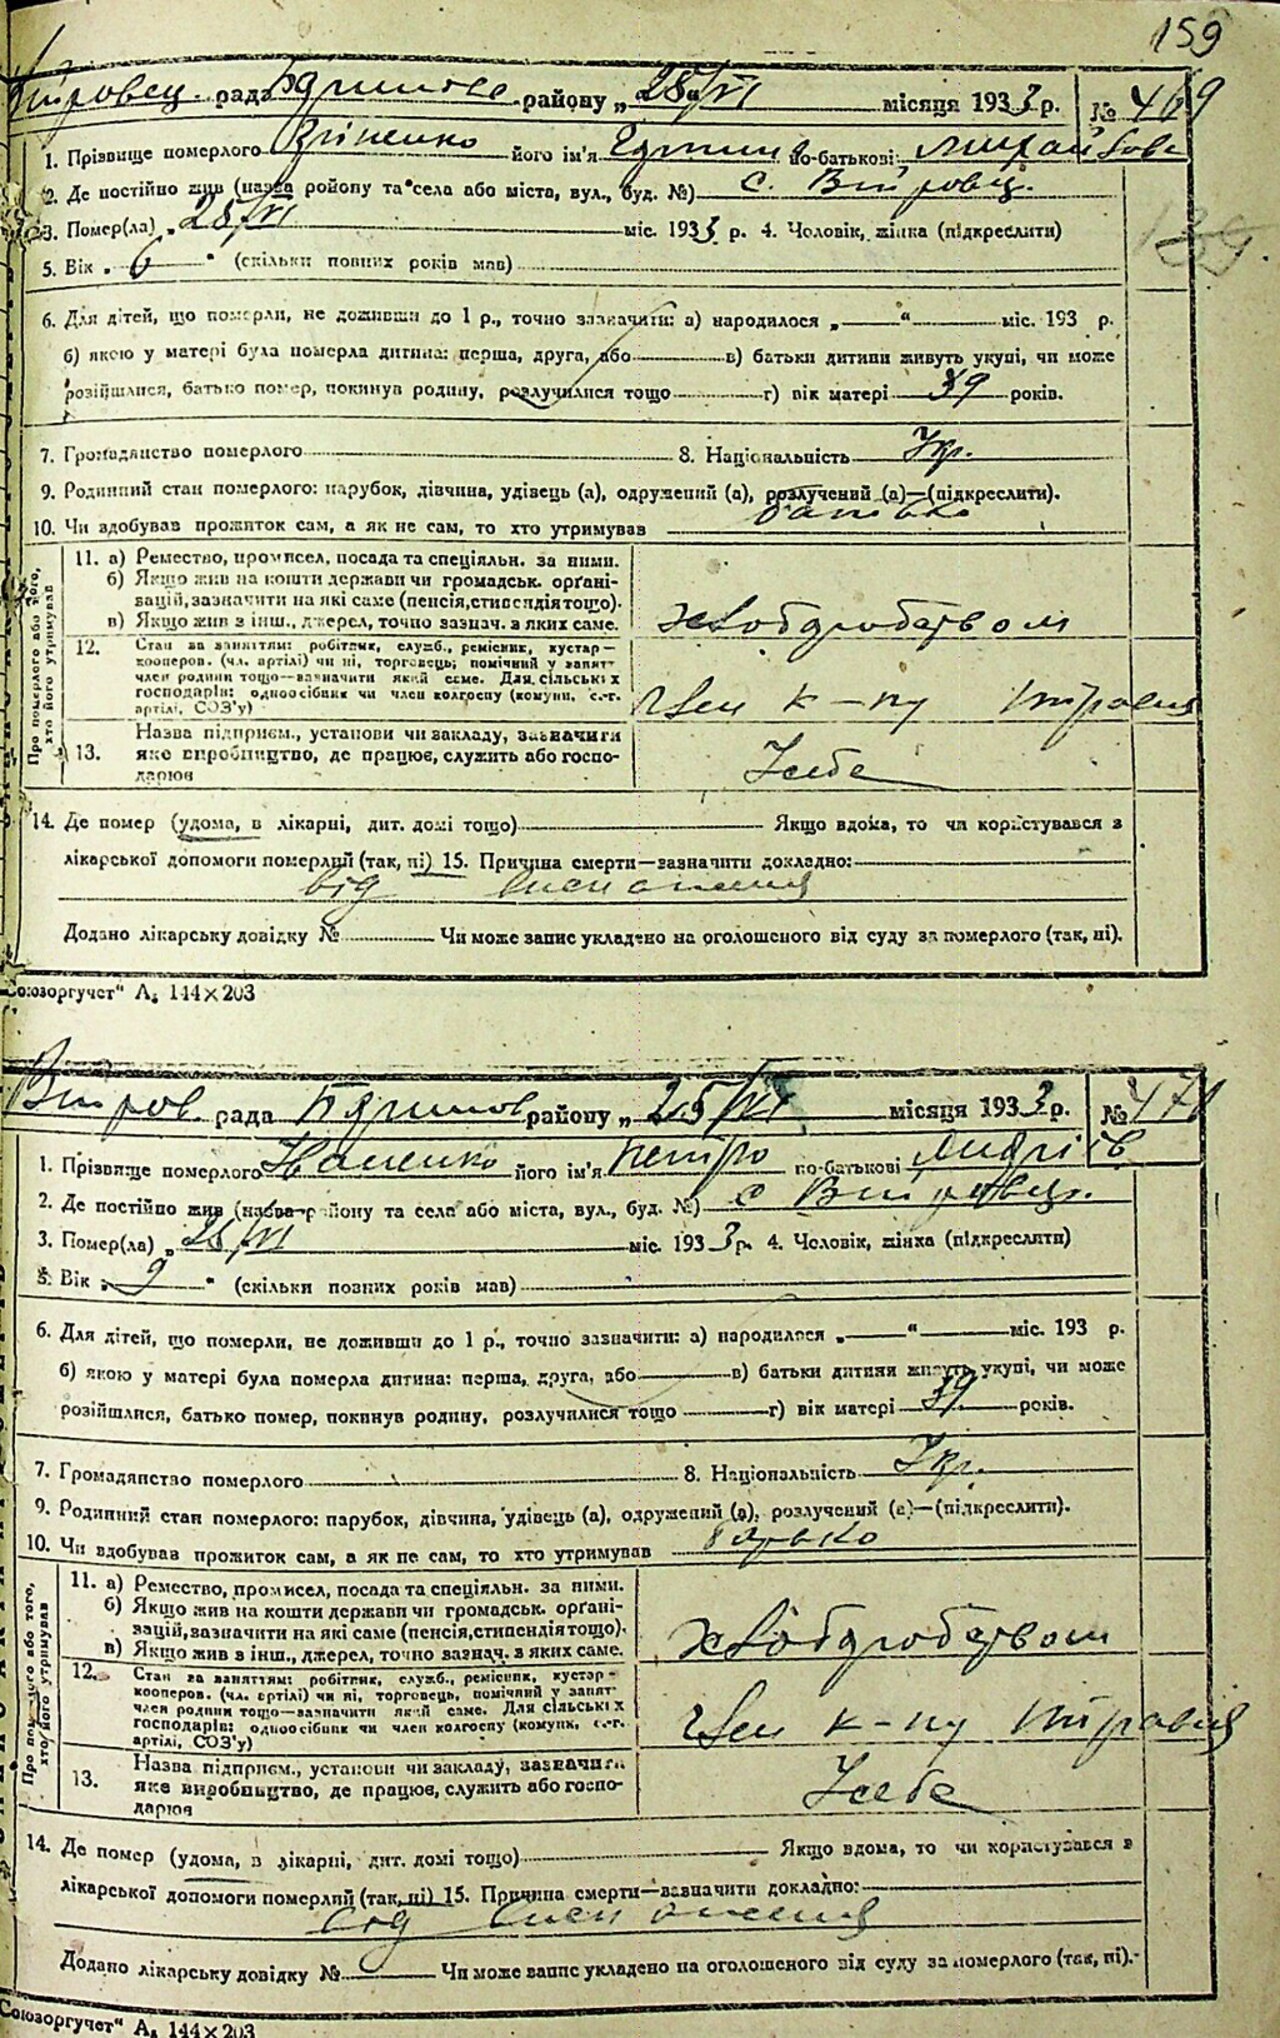 159
рада району „28/VI місяця 1933 р. № 469
1. Прізвище померлого його ім'я по-батькові
2. Де постійно жив (назва ройопу та села або міста, вул., буд. №) с.
3. Помер(ла) „28/VI міс. 1933 р. 4. Чоловік, жінка (підкреслити)
5. Вік „6" (скільки повних років мав)
6. Для дітей, що померли, не доживши до 1 р., точно зазначити: а) народилося „—“ міс. 193 р.
б) якою у матері була померла дитина: перша, друга, або в) батьки дитини живуть укупі, чи може
розійшлися, батько помер, покинув родину, розлучилися тощо г) вік матері 39 років.
7. Громадянство померлого 8. Національність Укр.
9. Родинний стан померлого: парубок, дівчина, удівець (а), одружений (а), розлучений (а)—(підкреслити).
10. Чи здобував прожиток сам, а як не сам, то хто утримував батько
Про померлого або того, хто його утримував
11. а) Ремество, промисел, посада та спеціяльн. за ними.
б) Якщо жив на кошти держави чи громадськ. орґані-
зацій, зазначити на які саме (пенсія, стипендія тощо).
в) Якщо жив з інш., джерел, точно зазнач. з яких саме. хліборобством
12. Стан за заняттям: робітник, служб., ремісник, кустар—
кооперов. (чл. артілі) чи ні, торговець; помічний у занят-
член родини тощо—зазначити який саме. Для сільських
господарів: одноосібник чи член колгоспу (комуни, с.-г.
артілі, СОЗ'у) член к-пу
13. Назва підприєм., установи чи закладу, зазначити
яке виробництво, де працює, служить або госпо-
дарює У себе
14. Де помер (удома, в лікарні, дит. домі тощо) Якщо вдома, то чи користувався з
лікарської допомоги померлий (так, ні) 15. Причина смерти—зазначити докладно:
від виснаження
Додано лікарську довідку № Чи може запис укладено на оголошеного від суду за померлого (так, ні).
Союзоргучет" А₅ 144×203
рада району „25/VI місяця 1933 р. № 471
1. Прізвище померлого його ім'я Петро по-батькові Андріїв
2. Де постійно жив (назва району та села або міста, вул., буд. №) с
3. Помер(ла) „25/VI міс. 1933 р. 4. Чоловік, жінка (підкреслити)
5. Вік „9" (скільки повних років мав)
6. Для дітей, що померли, не доживши до 1 р., точно зазначити: а) народилося „—“ міс. 193 р.
б) якою у матері була померла дитина: перша, друга, або в) батьки дитини живуть укупі, чи може
розійшлися, батько помер, покинув родину, розлучилися тощо г) вік матері років.
7. Громадянство померлого 8. Національність Укр.
9. Родинний стан померлого: парубок, дівчина, удівець (а), одружений (а), розлучений (а)—(підкреслити).
10. Чи здобував прожиток сам, а як не сам, то хто утримував батько
Про померлого або того, хто його утримував
11. а) Ремество, промисел, посада та спеціяльн. за ними.
б) Якщо жив на кошти держави чи громадськ. орґані-
зацій, зазначити на які саме (пенсія, стипендія тощо).
в) Якщо жив з інш., джерел, точно зазнач. з яких саме. хліборобством
12. Стан за заняттям: робітник, служб., ремісник, кустар-
кооперов. (чл. артілі) чи ні, торговець, помічний у занят-
член родини тощо—зазначити який саме. Для сільських
господарів: одноосібник чи член колгоспу (комуни, с.-г.
артілі, СОЗ'у) член к-пу
13. Назва підприєм., установи чи закладу, зазначити
яке виробництво, де працює, служить або госпо-
дарює У себе
14. Де помер (удома, в лікарні, дит. домі тощо) Якщо вдома, то чи користувався з
лікарської допомоги померлий (так, ні) 15. Причина смерти—зазначити докладно:
від виснаження
Додано лікарську довідку № Чи може запис укладено на оголошеного від суду за померлого (так, ні).
Союзоргучет" А₅ 144×203